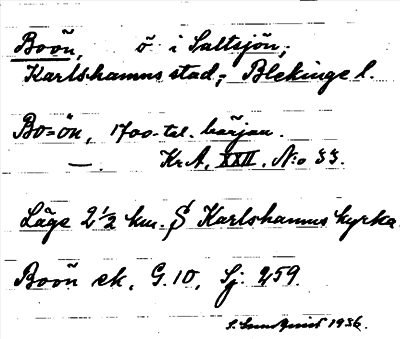 Boön, ö i Saltsjön,
Karlshamns stad, Blekinge l.
Bo=ön, 1700-tal. början.
— Kr.A. XXII. N:o 33.
Läge 2½ km. S Karlshamns kyrka
Boön ek. G.10, Sj. 259.
1936.